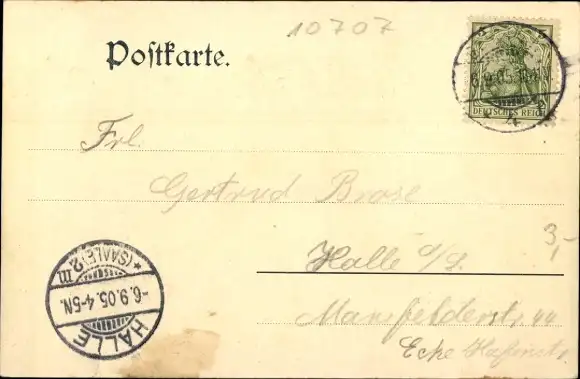 10707
Postkarte.
6.9.05.
DEUTSCHES REICH
Frl.
Gertrud Brose
3,-
Halle a/S.
Mansfelderstr. 44
Ecke Hafenstr.
HALLE
-6.9.05.4-5N.
*(SAALE)*2 m